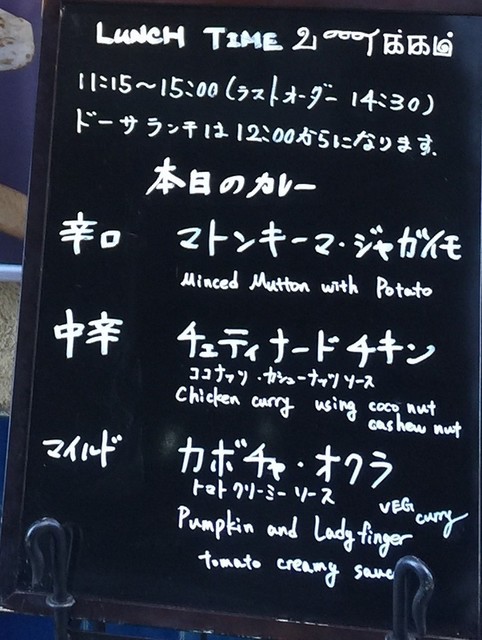 LUNCH TIME
11:15〜15:00(ラストオーダー 14:30)
ドーサランチは12:00からになります。
本日のカレー
辛口 マトンキーマ・ジャガイモ
Minced Mutton with Potato
中辛 チェティナードチキン
ココナッツ・カシューナッツソース
Chicken curry using coconut
cashew nut
マイルド カボチャ・オクラ
トマトクリーミーソース
VEG curry
Pumpkin and Ladyfinger
tomato creamy sauce